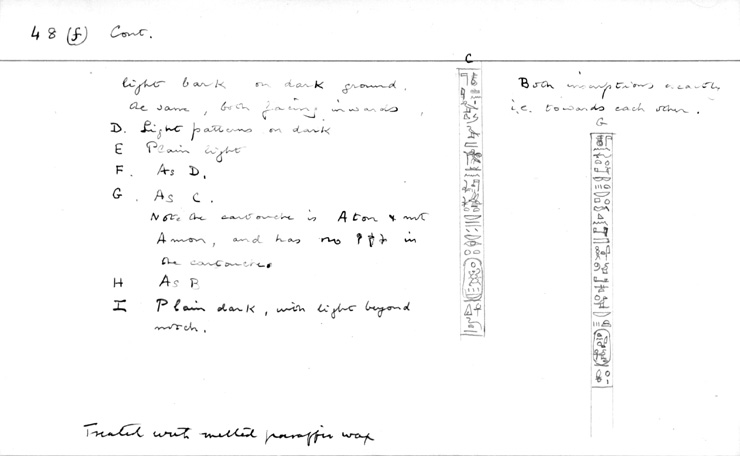 48 (f) Cont.
light bark on dark ground.
the same, both facing inwards,
D. Light patterns on dark
E Plain light
F. As D.
G. As C.
Note the cartouche is Aton & not
Amon, and has no in
the cartouche.
H As B
I Plain dark, with light beyond
notch.
Treated with melted paraffin wax
C
Both inscriptions
i.e. towards each other.
G